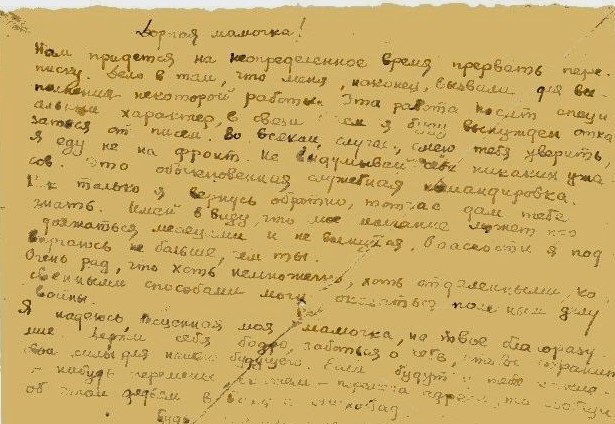 Дорогая мамочка!
Нам придется на неопределенное время прервать пере-
писку. Дело в том, что меня, наконец, вызвали для вы-
полнения некоторой работы. Эта работа носит специ
альный характер, в связи с чем я буду вынужден отка
заться от писем. Во всяком случае, смею тебя уверить,
я еду не на фронт. Не выдумывай себе никаких ужа-
сов. Это обыкновенная служебная командировка.
Как только я вернусь обратно, тотчас дам тебе
знать. Имей в виду, что мое молчание может про
должаться месяцами и не волнуйся, опасности я под
вергаюсь не больше, чем ты.
Очень рад, что хоть немножечко, хоть отдаленными, ко
свенными способами могу оказаться полезным делу
войны.
Я надеюсь, бесценная моя мамочка, на твое благоразу
мие. Держи себя бодро, заботься о себе, чтобы сохранить
свои силы для нашего будущего. Если будут у тебя какие
- нибудь перемены с адреса, то сообщи
об этом дядям
будь